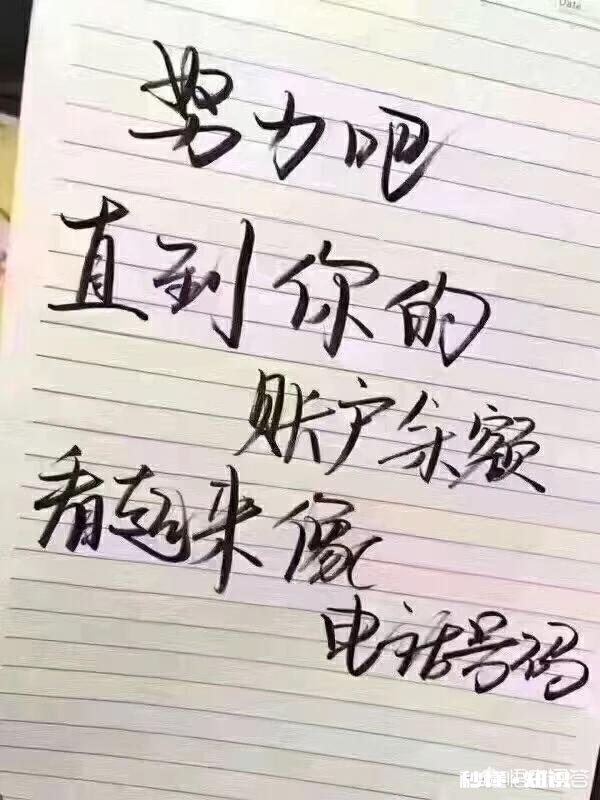 Date
努力吧
直到你的
账户余额
看起来像
电话号码
秒懂知识